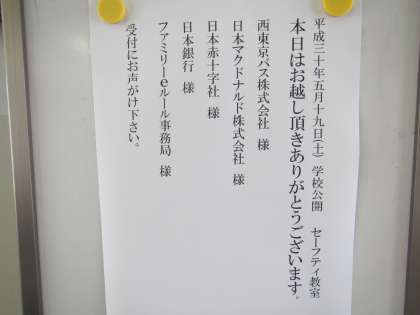 平成三十年五月十九日(土) 学校公開 セーフティ教室
本日はお越し頂きありがとうございます。
西東京バス株式会社 様
日本マクドナルド株式会社 様
日本赤十字社 様
日本銀行 様
ファミリーeルール事務局 様
受付にお声がけ下さい。